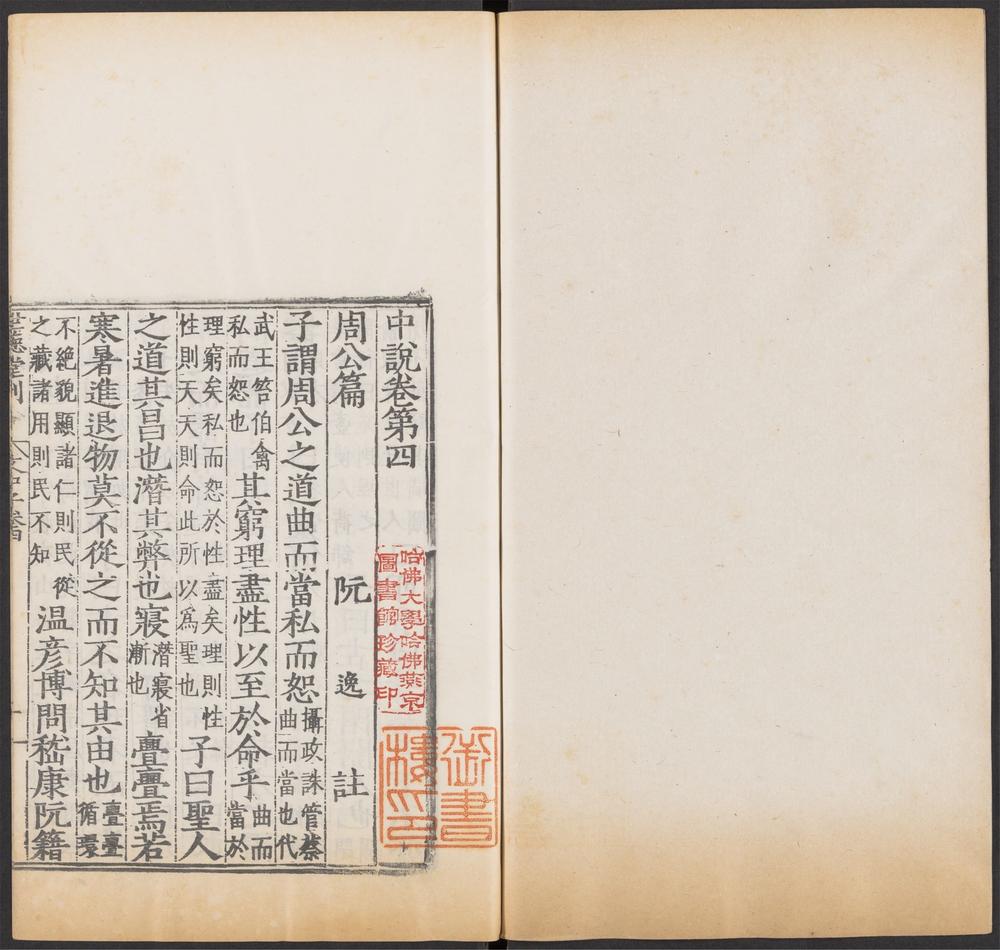 中說卷第四
周公篇 阮逸註
子謂周公之道曲而當私而恕攝政誅管蔡曲而當也代
武王笞伯禽私而恕也其窮理盡性以至於命乎曲而當於
理窮矣私而恕於性盡矣理則性性則天天則命此所以爲聖也子曰聖人
之道其昌也潛其弊也寢潛寢省漸也亹亹焉若
寒暑進退物莫不從之而不知其由也亹亹循環
不絶貌顯諸仁則民從之藏諸用則民不知温彦博問嵇康阮籍
世德堂刊
文中子卷四
哈佛大學哈佛燕京
圖書館珍藏印
御書
樓印